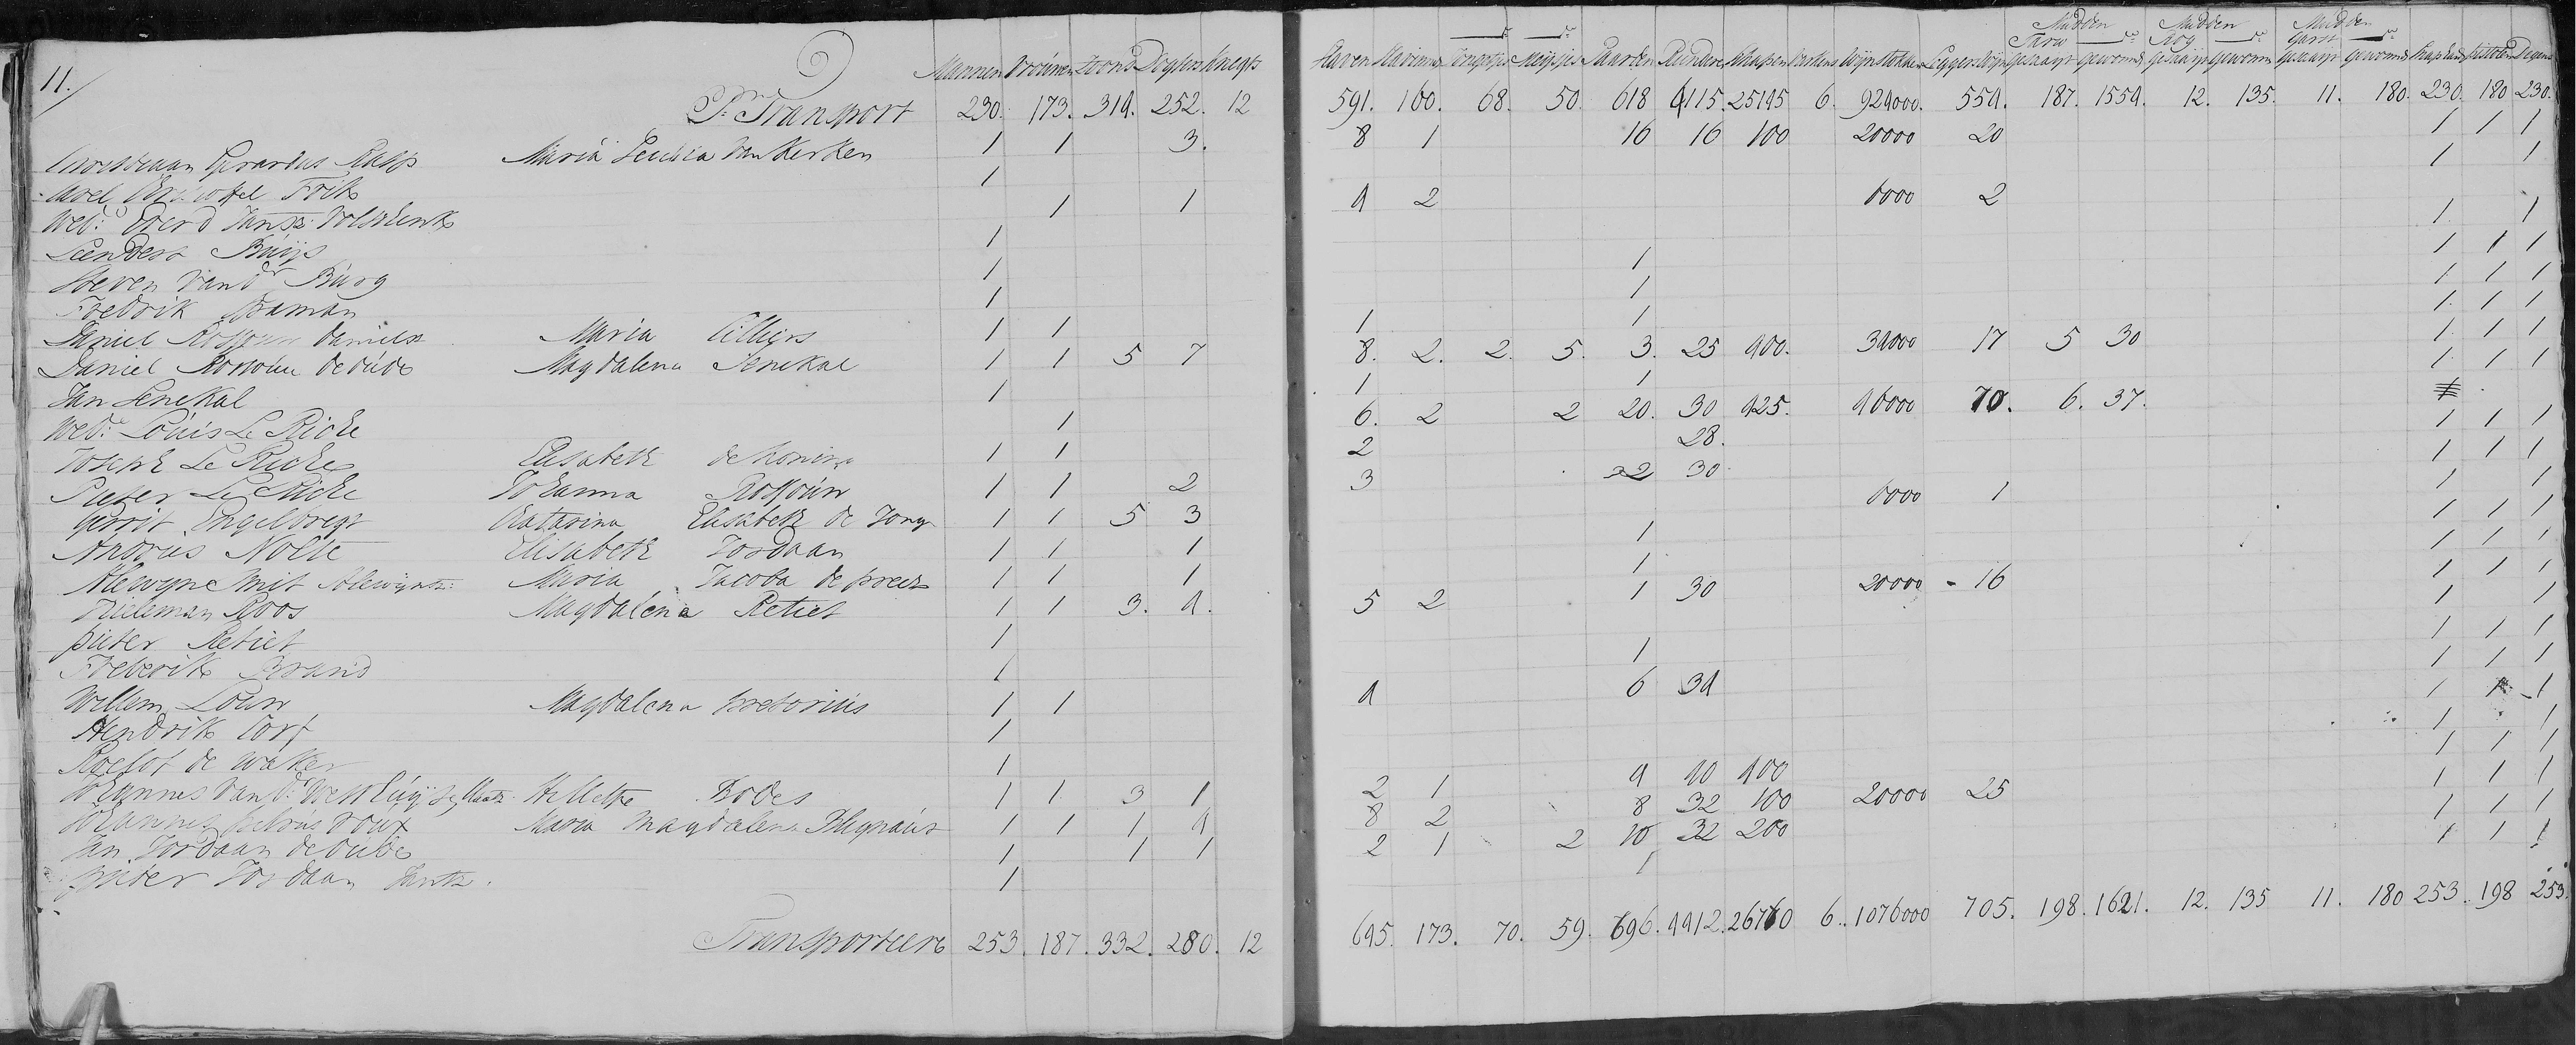 11./
Mannen Vrouwen Zoons Dogters Knegts
Slaven Slavinnen Jongetjes Meijsjes Paarden Runderen Schapen Varkens Wijnstokken Leggers Wijn Mudden Taru Gesaaijt Gewonnen Mudden Rog Gesaaijt Gewonnen Mudden Garst Gesaaijt Gewonnen Snaphaan Pistolen Degens
Pr. Transport 230. 173. 314. 252. 12 591. 160. 68. 50. 618 4115. 25145 6. 924000. 554. 187. 1554. 12. 135. 11. 180. 230. 180 230.
Gerardus Maria van Kerken 1 1 3. 8 1 16 16 100 20000 20 1 1 1
Frik 1 1 1
Wed: Everd Jansz: Volschenk 1 1 4 2 6000 2
Senders Buijs 1 1 1
Steven van dr Burg 1 1 1 1 1
Fredrik 1 1 1 1 1
Daniel Rossouw Danielsz Maria Cilliers 1 1 1 1 1 1 1
Daniel Rossouw de oude Magdalena Senekal 1 1 5 7 8. 2. 2. 5. 3. 25 400. 34000 17 5 30 1 1 1
Jan Senekal 1 1 1 1 1 1
Wed: Louis Le Riche 1 6. 2 2 20. 30 425. 40000 70. 6. 37.
Joseph Le Riche Elisabeth de Koning 1 1 2 28. 1 1 1
Pieter Le Riche Johanna Rossouw 1 1 2 3 22 30 1 1 1
Gerrit Engelbregt Catarina Elisabeth de Jong 1 1 5 3 6000 1 1 1
Andries Nolte Elisabeth Jordaan 1 1 1 1 1 1 1
Alewyn Smit Alewynsz: Maria Jacoba de preez 1 1 1 1 1 1 1
Tieleman Roos Magdalena Retief 1 1 3. 4. 5 2 1 30 20000 - 16 1 1 1
pieter Retief 1 1 1
Frederik Brand 1 1 1 1 1
Willem Louw Magdalena pretorius 1 1 4 6 34 1 1 1
Hendrik 1 1 1 1
Roelof de waker 1 1 1
Johannes van dr Westhuijse Hester Bodes 1 1 3 1 2 1 4 40 400 1 1 1
Johannes petrus Roux Maria Magdalena Blignaut 1 1 1 4 8 2 8 32 100 20000 25 1 1 1
Jan Jordaan de oude 1 1 1 2 1 2 10 32 200 1 1 1
pieter Jordaan Jansz. 1 1 1 1 1
Transporteere 253. 187. 332. 280. 12 645. 173. 70. 59. 696. 4412. 26770 6. 1076000 705. 198. 1621. 12. 135 11. 180 253. 198 253.